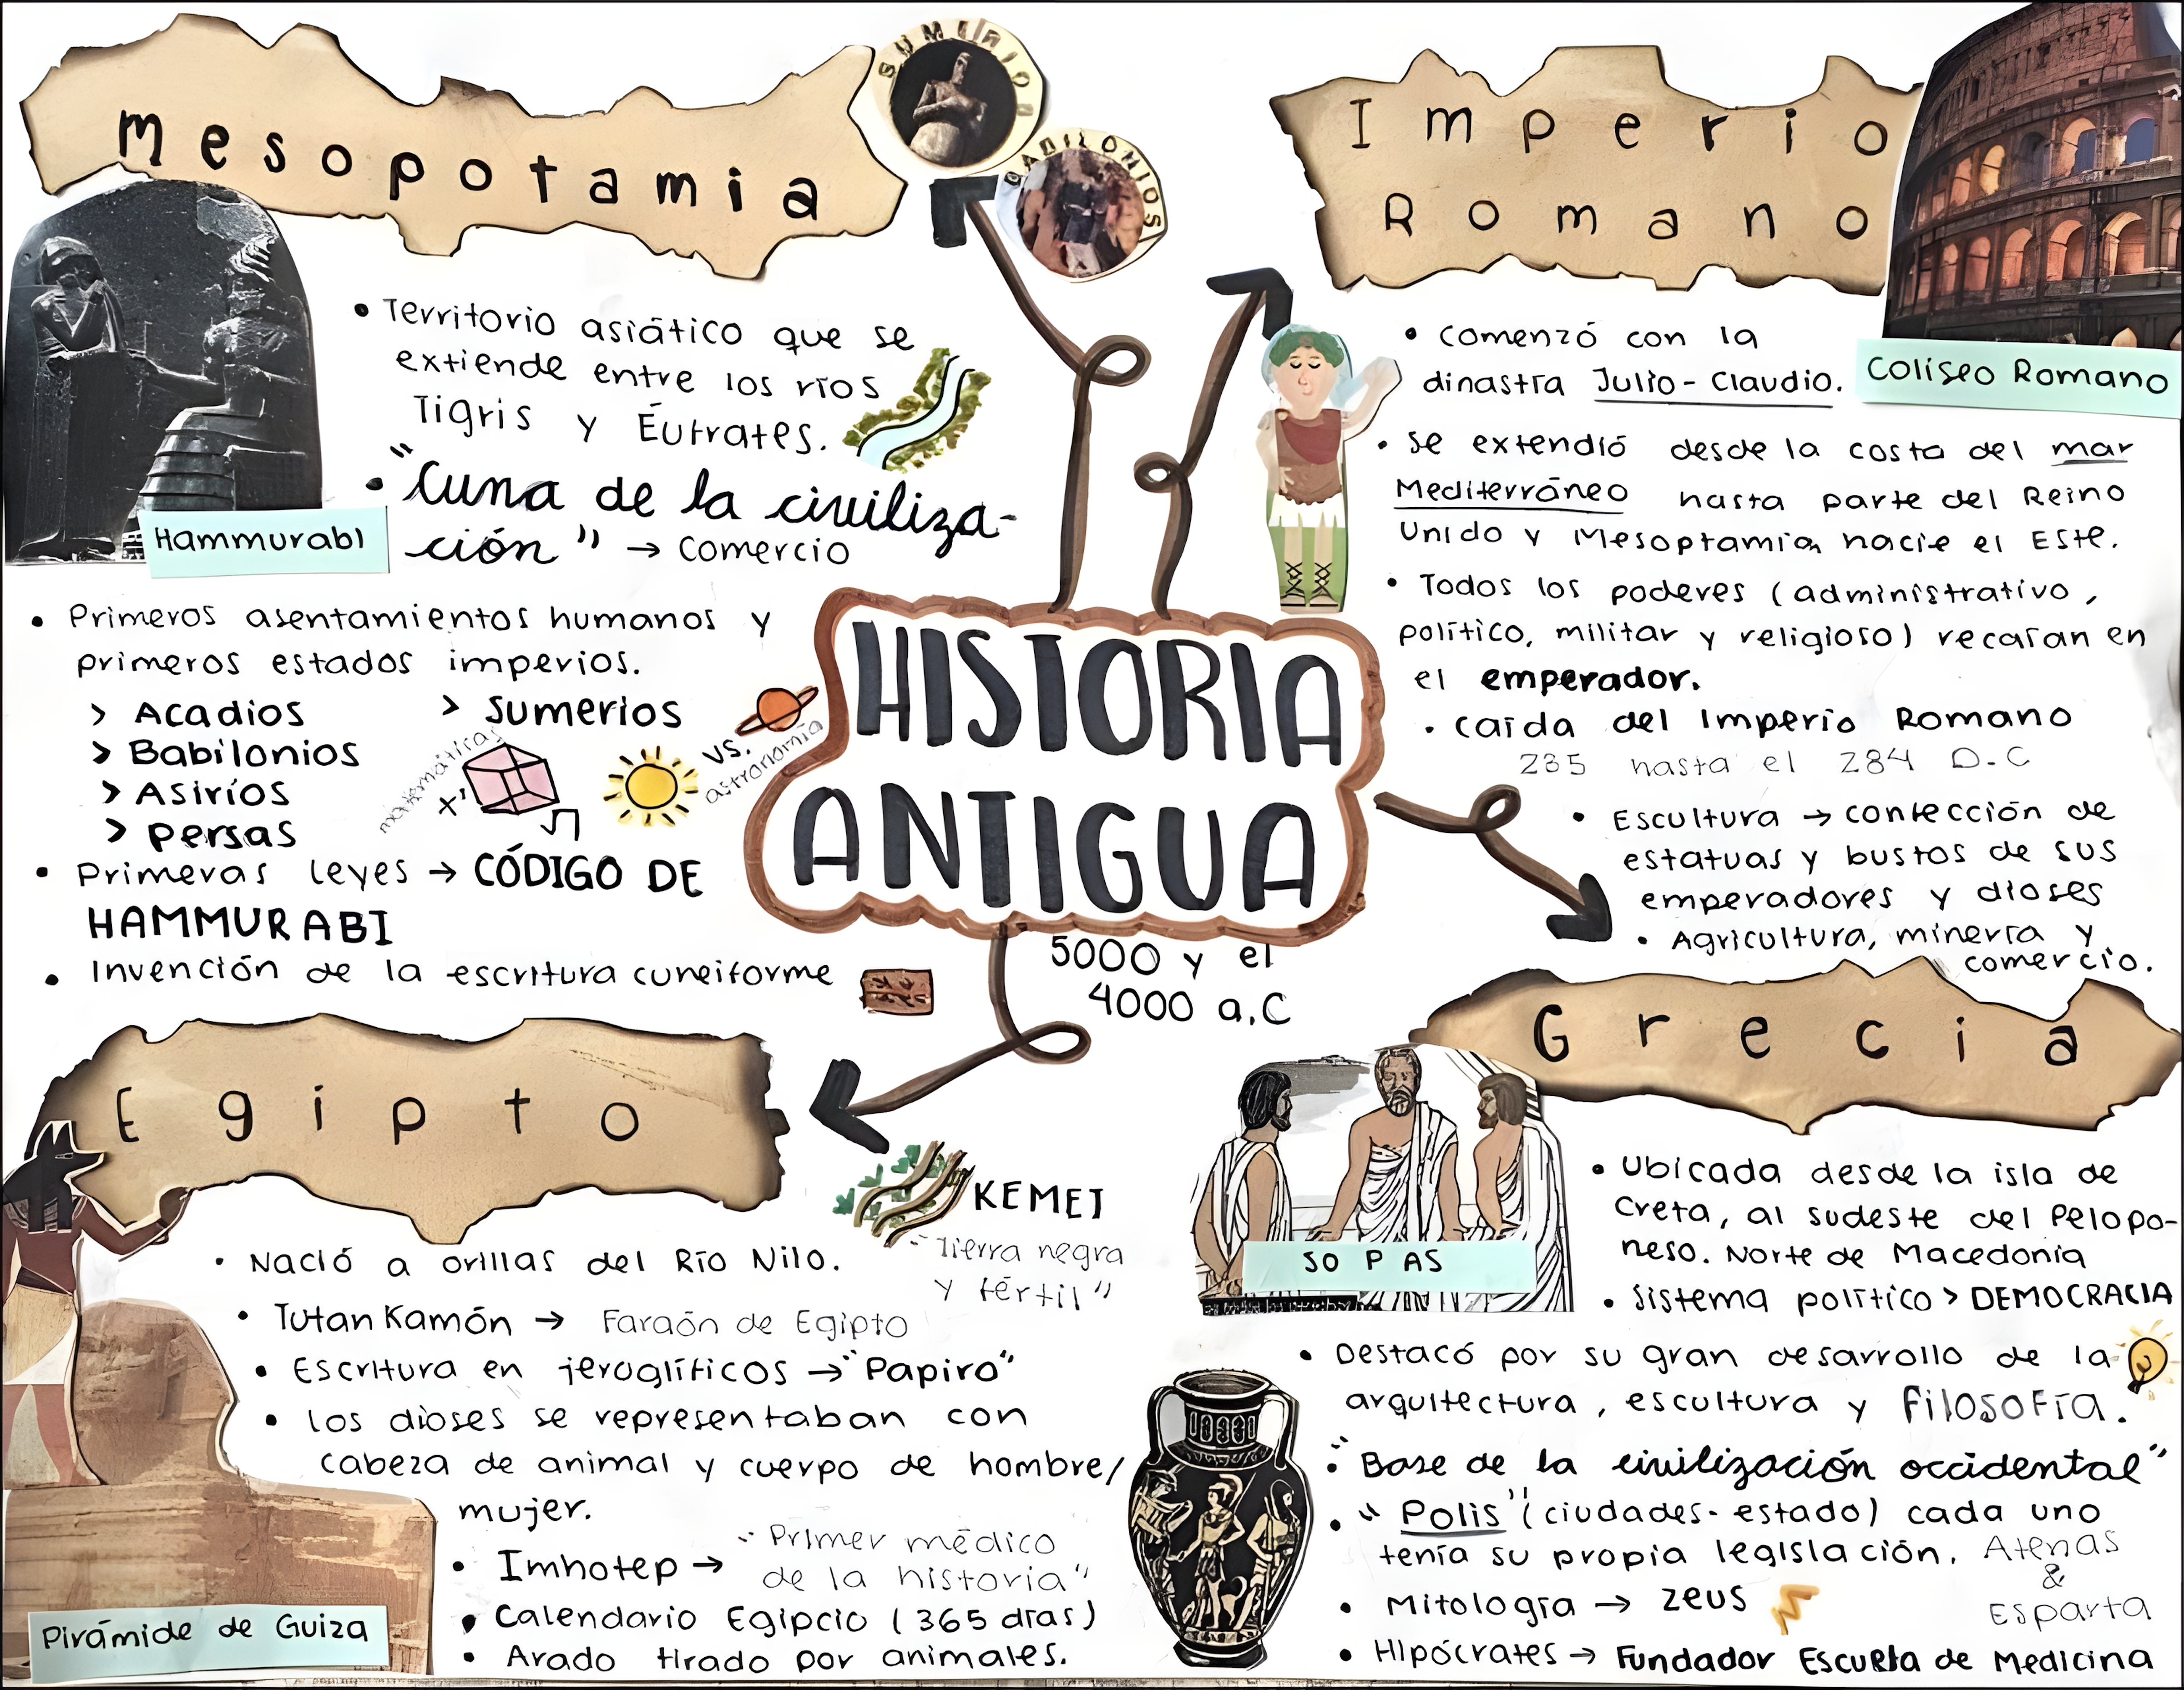 Mesopotamia
SUMERIOS
BABILONIOS
Hammurabi
• Territorio asiático que se
extiende entre los ríos
Tigris y Éufrates.
• "Cuna de la civiliza-
ción" → Comercio
• Primeros asentamientos humanos y
primeros estados imperios.
> Acadios
> Sumerios
> Babilonios
> Asiríos
> persas
matemáticas
x'
√
vs.
astronomía
• Primeras leyes → CÓDIGO DE
HAMMURABI
• Invención de la escritura cuneiforme
HISTORIA
ANTIGUA
5000 y el
4000 a.C
Imperio
Romano
Coliseo Romano
• Comenzó con la
dinastía Julio-Claudio.
• Se extendió desde la costa del mar
Mediterráneo hasta parte del Reino
Unido y Mesoptamia hacie el Este.
• Todos los poderes (administrativo,
político, militar y religioso) recaían en
el emperador.
• Caída del Imperio Romano
235 hasta el 284 D.C
• Escultura → confección de
estatuas y bustos de sus
emperadores y dioses
• Agricultura, minería y
comercio.
Egipto
KEMET
"Tierra negra
y fértil"
• Nació a orillas del Río Nilo.
• Tutan Kamón → Faraón de Egipto
• Escritura en jeroglíficos → "Papiro"
• Los dioses se representaban con
cabeza de animal y cuerpo de hombre/
mujer.
• Imhotep → "Primer médico
de la historia"
• Calendario Egipcio (365 días)
• Arado tirado por animales.
Pirámide de Guiza
Grecia
SO P AS
• Ubicada desde la isla de
Creta, al sudeste del Pelopo-
neso. Norte de Macedonia
• Sistema político > DEMOCRACIA
• Destacó por su gran desarrollo de la
arquitectura, escultura y filosofía.
• "Base de la civilización occidental"
• "Polis" (ciudades-estado) cada uno
tenía su propia legislación. Atenas
&
Esparta
• Mitología → Zeus
• Hipócrates → Fundador Escuela de Medicina